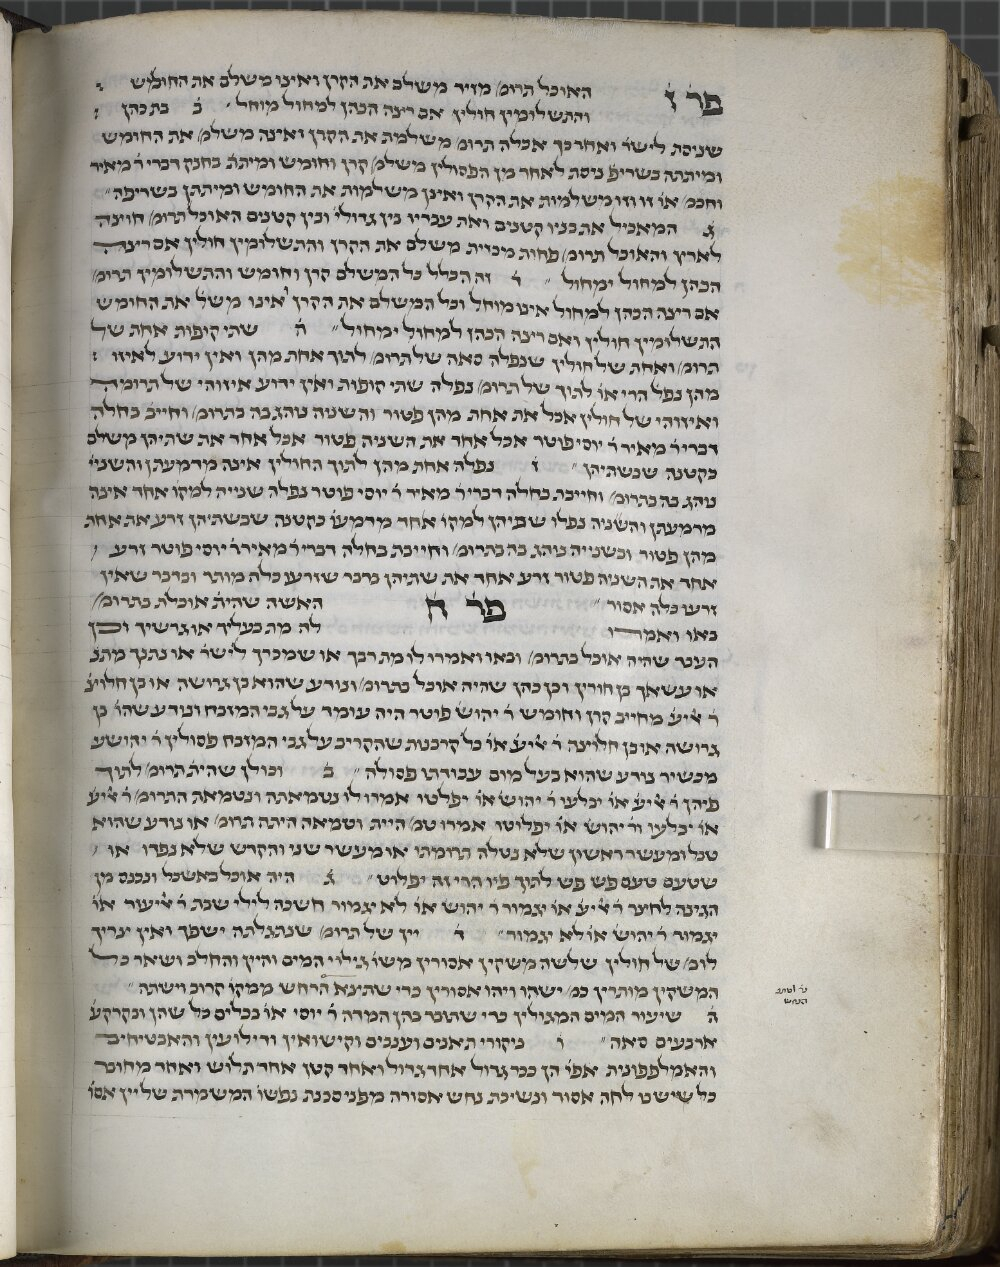 פר ז האוכל תרומ׳ מזיד משלם את הקרן ואינו משלם את החומש
והתשלומין חולין אם רצה הכהן למחול מוחל ׳ ב בת כהן
שניסת לישר׳ ואחר כך אכלה תרומ׳ משלמת את הקרן ואינה משלמ׳ את החומש
ומיתתה בשריפ׳ ניסת לאחד מן הפסולין משלמ׳ קרן וחומש ומיתת׳ בחנק דברי ר׳ מאיר
וחכמ׳ או׳ זו וזו משלמות את הקרן ואינן משלמות את החומש ומיתתן בשריפה ״
ג המאכיל את בניו קטנים ואת עבדיו בין גדולי׳ ובין קטנים האוכל תרומ׳ חוצה
לארץ והאוכל תרומ׳ פחות מכזית משלם את הקרן והתשלומין חולין אם רצה
הכהן למחול ימחול ״ ד זה הכלל כל המשלם קרן וחומש והתשלומין תרומ׳
אם רצה הכהן למחול אינו מוחל וכל המשלם את הקרן ׳אינו משל׳ את החומש
התשלומין חולין ואם רצה הכהן למחול ימחול ״ ה שתי קופות אחת של
תרומ׳ ואחת של חולין שנפלה סאה של תרומ׳ לתוך אחת מהן ואין ידוע לאיזו
מהן נפל הרי או׳ לתוך של תרומ׳ נפלה שתי קופות ואין ידוע איזוהי של תרומה
ואיזוהי של חולין אכל את אחת מהן פטור והשניה נוהג בה בתרומ׳ וחייב בחלה
דברי ר׳ מאיר ר׳ יוסי פוטר אכל אחד את השניה פטור אכל אחד את שתיהן משלם
כקטנה שבשתיהן ״ ו נפלה אחת מהן לתוך החולין אינה מדמעתן והשני׳
נוהג בה בתרומ׳ וחייבת בחלה דברי ר׳ מאיר ר׳ יוסי פוטר נפלה שנייה למקו׳ אחד אינה
מדמעתן והשניה נפלו שתיהן למקו׳ אחד מדמעו׳ כקטנה שבשתיהן זרע את אחת
מהן פטור ובשנייה נוהג בה בתרומ׳ וחייבת בחלה דברי ר׳ מאיר ר׳ יוסי פוטר זרע
אחד את השניה פטור זרע אחד את שתיהן בדבר שזרעו כלה מותר ובדבר שאין
זרעו כלה אסור ״ פר ח האשה שהית׳ אוכלת בתרומ׳
באו ואמרו לה מת בעליך או גרשיך וכן
העבד שהיה אוכל בתרומ׳ ובאו ואמרו לו מת רבך או שמכרך לישר׳ או נתנך מתנ׳
או עשאך בן חורין וכן כהן שהיה אוכל בתרומ׳ ונודע שהוא בן גרושה או בן חלוצ׳
ר׳ אליע׳ מחייב קרן וחומש ר׳ יהוש׳ פוטר היה עומד על גבי המזבח ונודע שהו׳ בן
גרושה או בן חלוצה ר׳ אליע׳ או׳ כל קרבנות שהקריב על גבי המזבח פסולין ר׳ יהושע
מכשיר נודע שהוא בעל מום עבודתו פסולה ״ ב וכולן שהית׳ תרומ׳ לתוך
פיהן ר׳ אליע׳ או׳ יבלעו ר׳ יהוש׳ או׳ יפלטו אמרו לו נטמאתה ונטמאת התרומ׳ ר׳ אליע׳
או׳ יבלעו ור׳ יהוש׳ או׳ יפלוטו אמרו טמ׳ היית וטמאה היתה תרומ׳ או נודע שהוא
טבל ומעשר ראשון שלא נטלה תרומתו או מעשר שני והקדש שלא נפדו או
שטעם טעם פש פש לתוך פיו הרי זה יפלוט ״ ג היה אוכל באשכל ונכנס מן
הגינה לחצר ר׳ אליע׳ או׳ יגמור ר׳ יהוש׳ או׳ לא יגמור חשכה לילי שבת ר׳ אליעזר או׳
יגמור ר׳ יהוש׳ או׳ לא יגמור ״ ד יין של תרומ׳ שנתגלתה ישפך ואין צריך
לומ׳ של חולין שלשה משקין אסורין משו׳ גילוי המים והיין והחלב ושאר כל
המשקין מותרין כמ׳ ישהו ויהו אסורין כדי שתיצא הרחש ממקו׳ קרוב וישתה ״
ה שיעור המים המגולין כדי שתוכר בהן המרה ר׳ יוסי או׳ בכלים כל שהן ובקרקע
ארבעים סאה ״ ו ניקורי תאנים וענבים וקישואין ודילועין והאבטיחים
והאמלפפונית אפי׳ הן ככר גדול אחד גדול ואחד קטן אחד תלוש ואחד מחובר
כל שיש בו לחה אסור ונשיכת נחש אסורה מפני סכנת נפשו׳ המשמרת של יין אסו׳